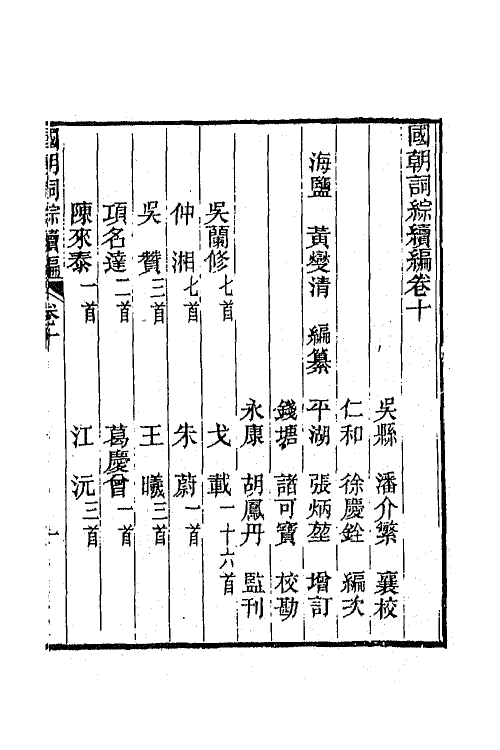 國朝詞綜續編卷十
吳縣 潘介繁 襄校
仁和 徐慶銓 編次
海鹽 黃燮清 編纂 平湖 張炳堃 增訂
錢塘 諸可寶 校勘
永康 胡鳳丹 監刊
吳蘭修七首 戈載一十六首
仲湘七首 朱蔚一首
吳贊三首 王曦三首
項名達二首 葛慶曾一首
陳來泰一首 江沅三首
國朝詞綜續編 卷十 一